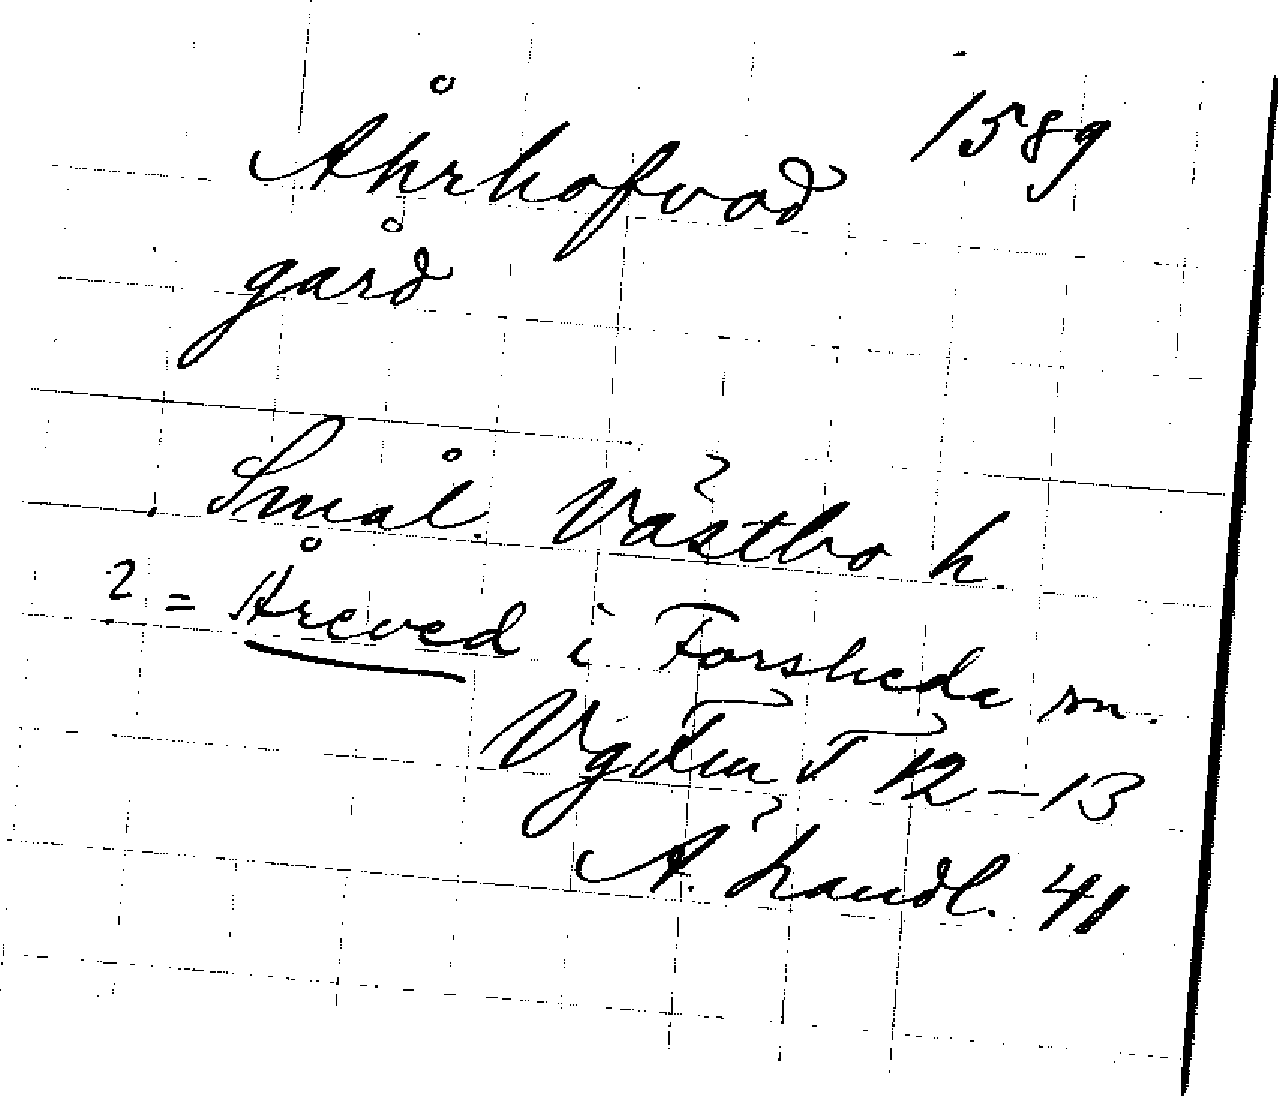 Åhrhofvad 1589
gård
Smål. Västbo h.
? = Åreved i Forsheda sn.
Vg 12–13
Ä. handl. 41